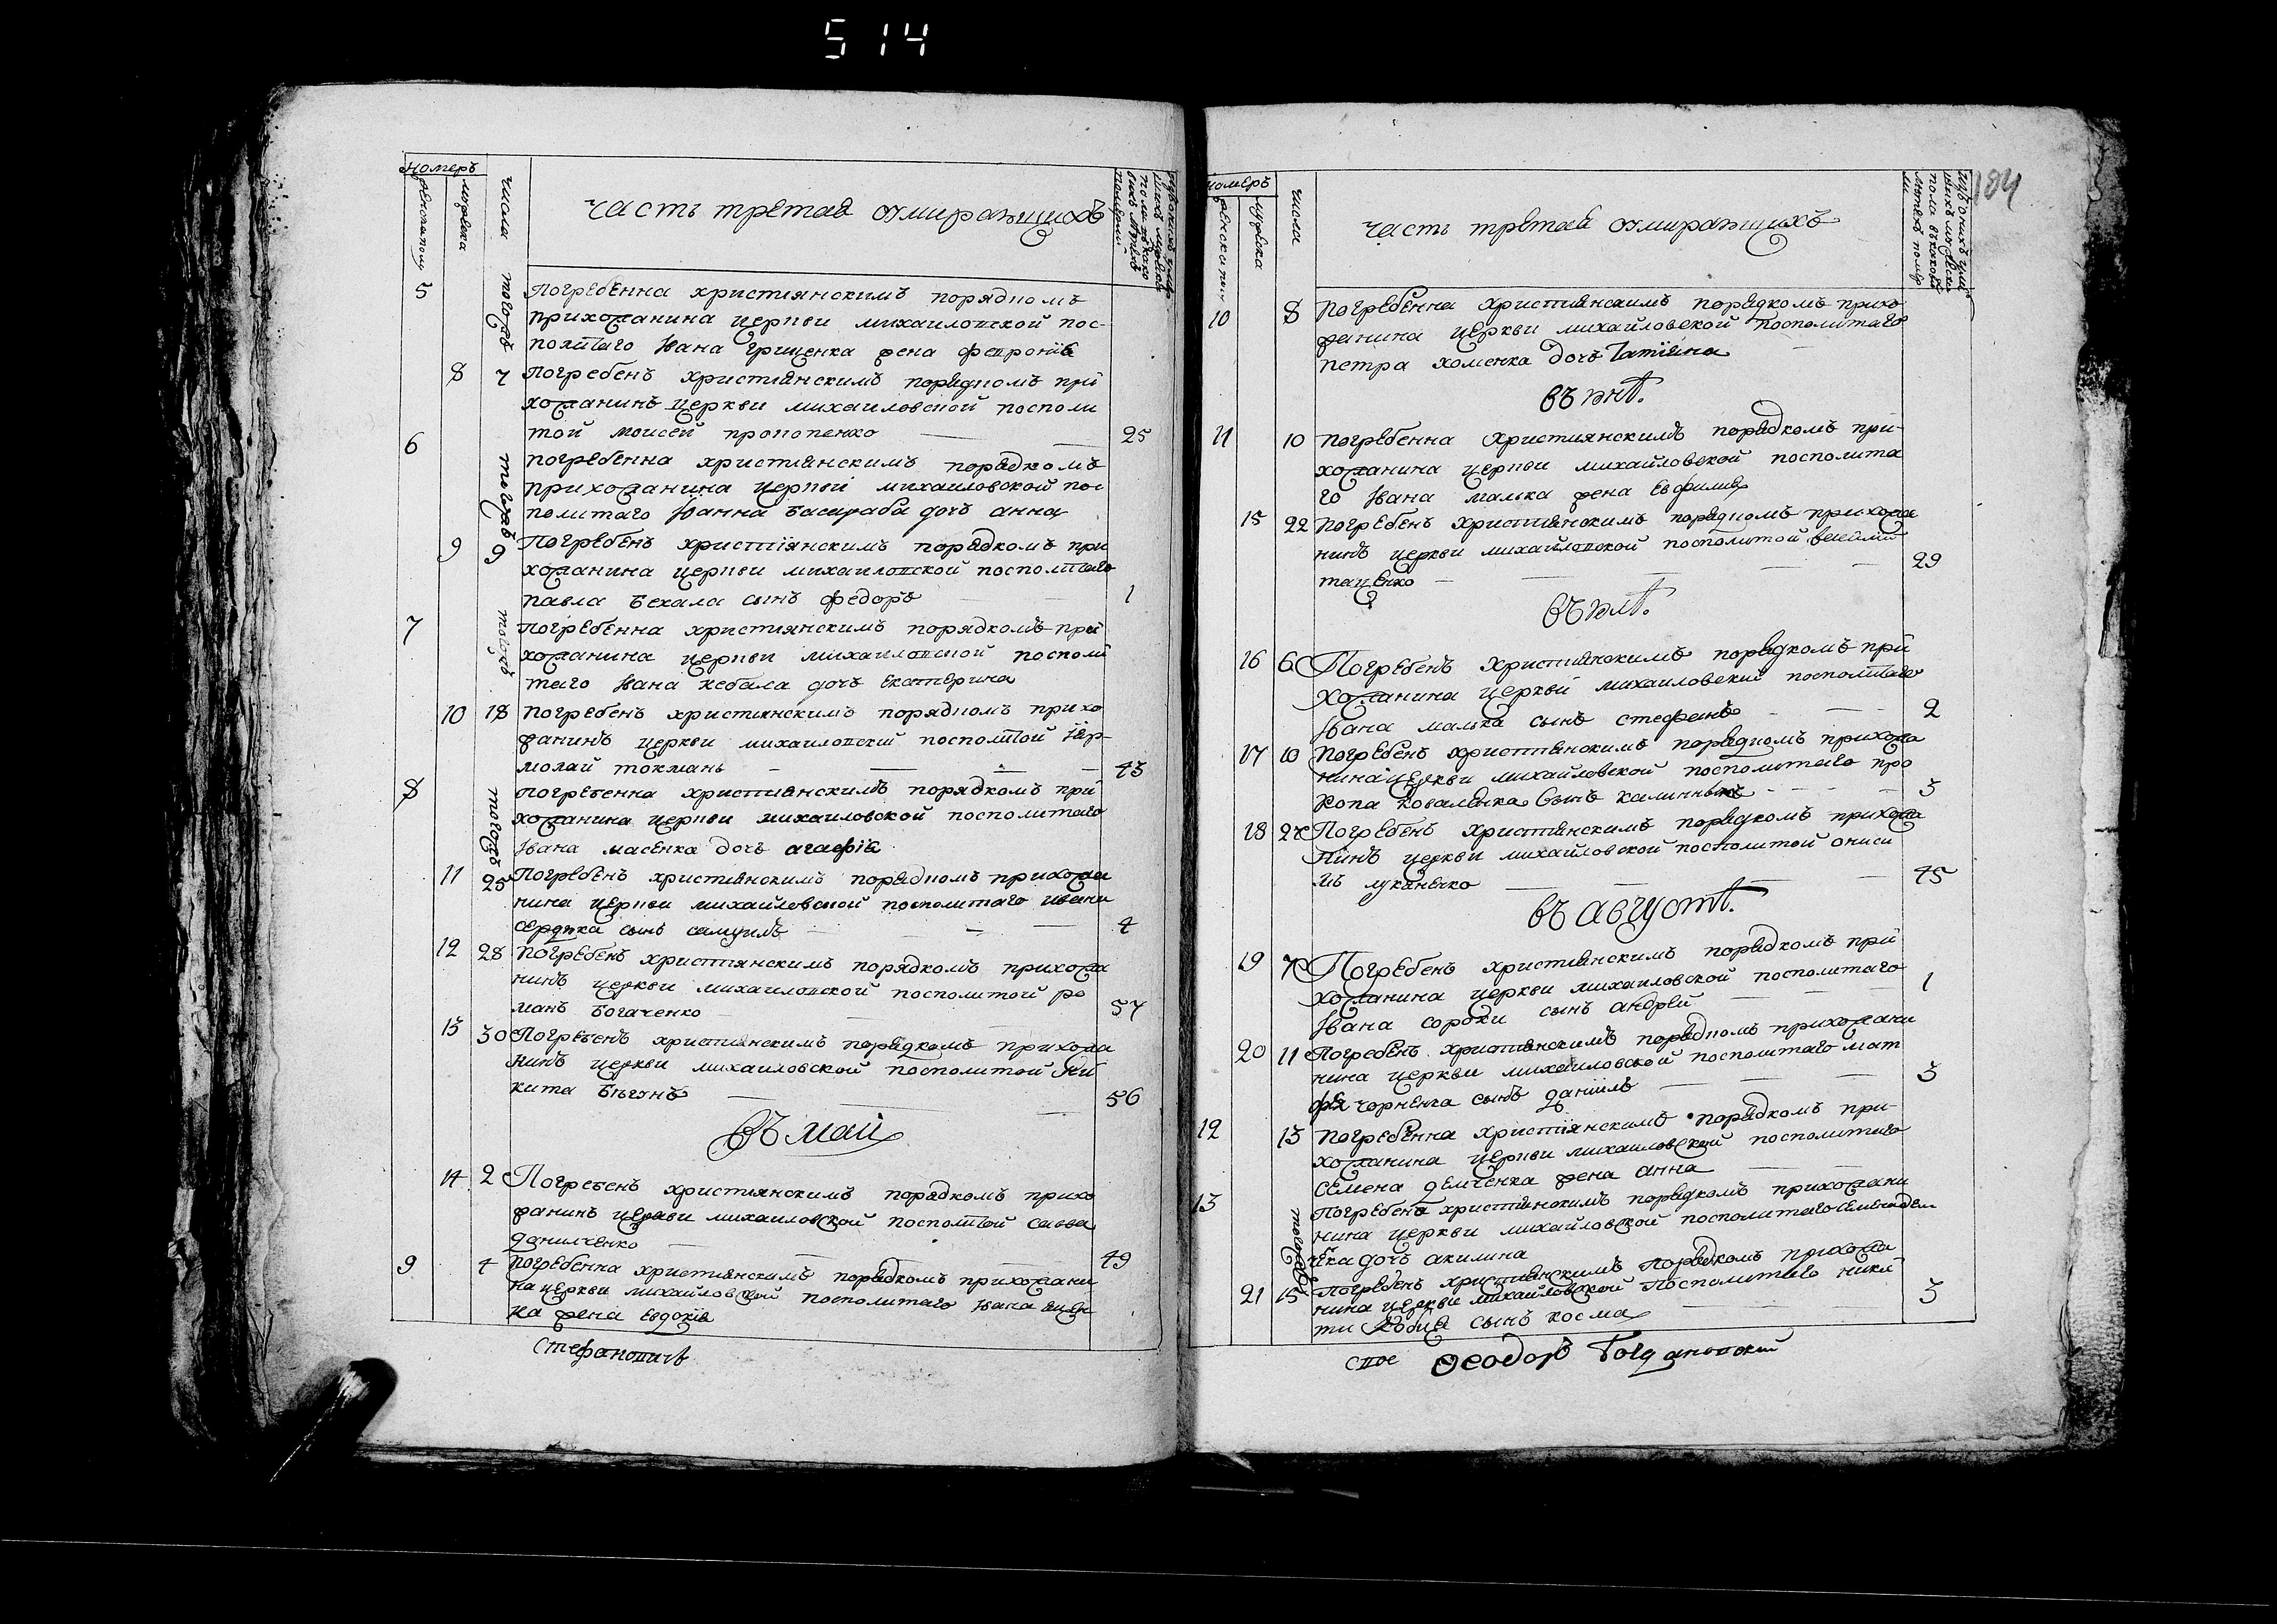 514
Номеръ
женска полу
мужеска
числа
часть третая оумирающихъ
5 тогожъ Погребенна християнскимъ порядкомъ
прихожанина церкви михаиловской пос-
политаго Ивана Гриценка жена Феѵронія
8 7 Погребенъ християнскимъ порядкомъ при
хожанинъ церкви михаиловской посполи
той Моисей прокопенко 25
6 тогожъ погребенна християнскимъ порядкомъ
прихожанина церкви михаиловской пос
политаго Іоанна Басараба дочъ анна
9 9 Погребенъ християнскимъ порядкомъ при
хожанина церкви михаиловской посполитаго
павла Бехала сынъ федоръ 1
7 тогожъ Погребенна християнскимъ порядкомъ при
хожанина церкви михаиловской посполи
таго Ивана кебала дочъ Екатерина
10 18 Погребенъ християнскимъ порядкомъ прихо
жанинъ церкви михаиловской посполитой Іер-
молай токмань 43
8 тогожъ погребенна християнскимъ порядкомъ при
хожанина церкви михаиловской посполитаго
Ивана масенка дочъ агафія
11 25 Погребенъ християнскимъ порядкомъ прихожа
нина церкви михайловской посполитаго Ивана
сердюка сынъ самуилъ 4
12 28 Погребенъ християнскимъ порядкомъ прихожа
нинъ церкви михаиловской посполитой ро
манъ Богаченко 57
13 30 Погребенъ християнскимъ порядкомъ прихожа
нинъ церкви михаиловской посполитой Ни
кита Бѣгунъ 56
въ маи
14 2 Погребенъ християнскимъ порядкомъ прихо
жанинъ церкви михаиловской посполитой савва
данилченко 49
9 4 Погребенна християнскимъ порядкомъ прихожани
на церкви михайловской посполитаго Ивана
ка жена Евдокія
Стефановичъ
184
номеръ
женска полу
мужеска
числа
часть третая оумирающихъ
10 8 Погребенна християнскимъ порядкомъ прихо
жанина церкви михайловской посполитаго
петра хоменка дочъ Татияна
въ юнѣ.
11 10 погребенна християнскимъ порядкомъ при-
хожанина церкви михайловской посполита
го Ивана малька жена Евфимия
15 22 погребенъ християнскимъ порядкомъ прихожа
нинъ церкви михайловской посполитой
таценко 29
въ юлѣ.
16 6 Погребенъ християнскимъ порядкомъ при
хожанина церкви михаиловский посполитаго
Ивана малька сынъ стефанъ 2
17 10 Погребенъ християнскимъ порядкомъ прихожа
нина церкви михайловской посполитаго про
копа коваленка сынъ калинникъ 3
18 27 Погребенъ християнскимъ порядкомъ прихожа
нинъ церкви михайловской посполитой ониси
мъ лукяненко 45
въ августѣ.
19 7 Погребенъ християнскимъ порядкомъ при
хожанина церкви михайловской посполитаго
Ивана сороки сынъ андрей 1
20 11 Погребенъ християнскимъ порядкомъ прихожани
нина церкви михайловской посполитаго мат
фея чорненка сынъ даніилъ 3
12 13 Погребенна християнскимъ порядкомъ при-
хожанина церкви михаиловской посполитаго
семена демченка жена анна
13 тогожъ Погребена християнскимъ порядкомъ прихожани
нина церкви михайловской посполитаго семена дем
ченка дочъ акилина
21 15 Погребенъ християнскимъ порядкомъ прихожа
нина церкви михайловской посполитаго ники
ти сынъ косма 3
Ѳеодоръ Богдановский